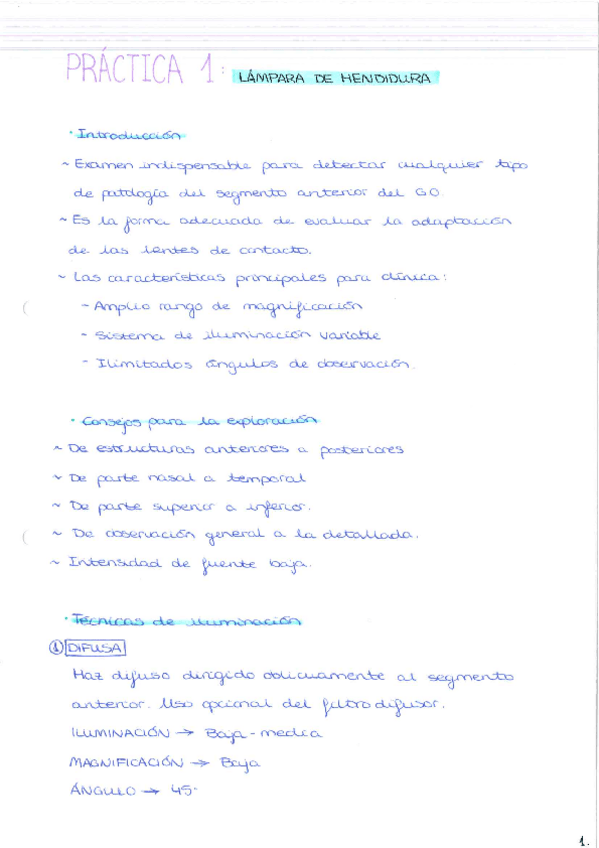 PRÁCTICA 1: LÁMPARA DE HENDIDURA
· Introducción
~ Examen indispensable para detectar cualquier tipo
de patología del segmento anterior del GO.
~ Es la forma adecuada de evaluar la adaptación
de las lentes de contacto.
~ Las características principales para clínica:
- Amplio rango de magnificación
- Sistema de iluminación variable
- Ilimitados ángulos de observación.
· Consejos para la exploración
~ De estructuras anteriores a posteriores
~ De parte nasal a temporal
~ De parte superior a inferior.
~ De observación general a la detallada.
~ Intensidad de fuente baja.
· Técnicas de iluminación
① DIFUSA
Haz difuso dirigido oblicuamente al segmento
anterior. Uso opcional del filtro difusor.
ILUMINACIÓN → Baja-media
MAGNIFICACIÓN → Baja
ÁNGULO → 45°
1.